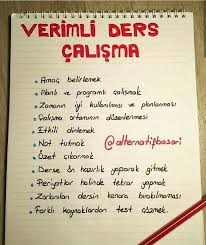 VERİMLİ DERS
ÇALIŞMA
Amaç belirlemek
Planlı ve programlı çalışmak
Zamanın iyi kullanılması ve planlanması
Çalışma ortamının düzenlenmesi
Etkili dinlemek
Not tutmak
@alternatifbasari
Özet çıkarmak
Derse ön hazırlık yaparak gitmek
Periyotlar halinde tekrar yapmak
Zorlanılan dersin kenara bırakılmaması
Farklı kaynaklardan test çözmek.